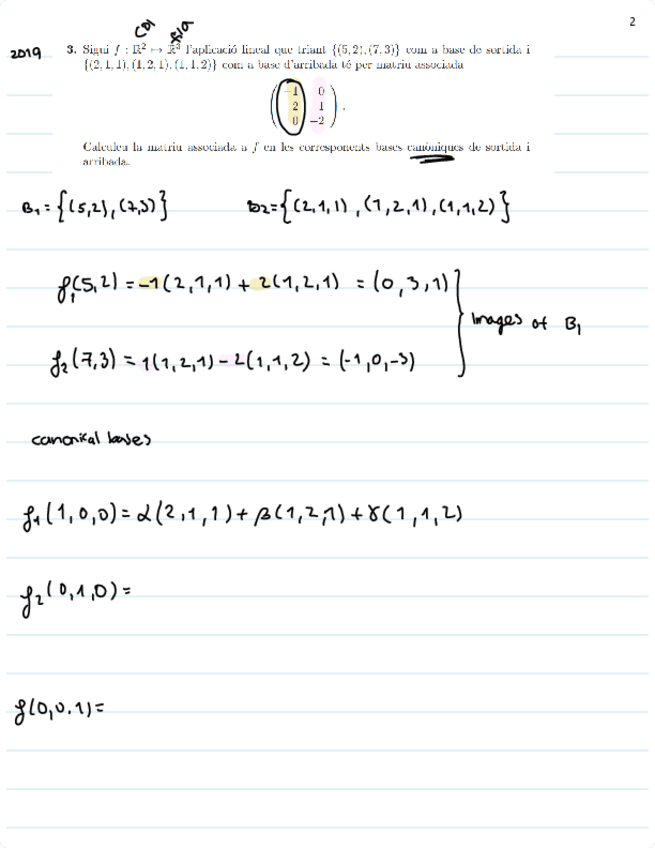 2
col
fila
2019 3. Sigui f : ℝ² ↦ ℝ³ l'aplicació lineal que triant {(5, 2), (7, 3)} com a base de sortida i
{(2, 1, 1), (1, 2, 1), (1, 1, 2)} com a base d'arribada té per matriu associada
-1 0
2 1
0 -2
Calculeu la matriu associada a f en les corresponents bases canòniques de sortida i
arribada.
B₁ = {(5,2), (7,3)} B2 = {(2,1,1), (1,2,1), (1,1,2)}
f₁(5,2) = -1(2,1,1) + 2(1,2,1) = (0,3,1)
Images of B₁
f₂(7,3) = 1(1,2,1) - 2(1,1,2) = (-1,0,-3)
canonical bases
f₁(1,0,0) = α(2,1,1) + β(1,2,1) + γ(1,1,2)
f₂(0,1,0) =
f(0,0,1) =